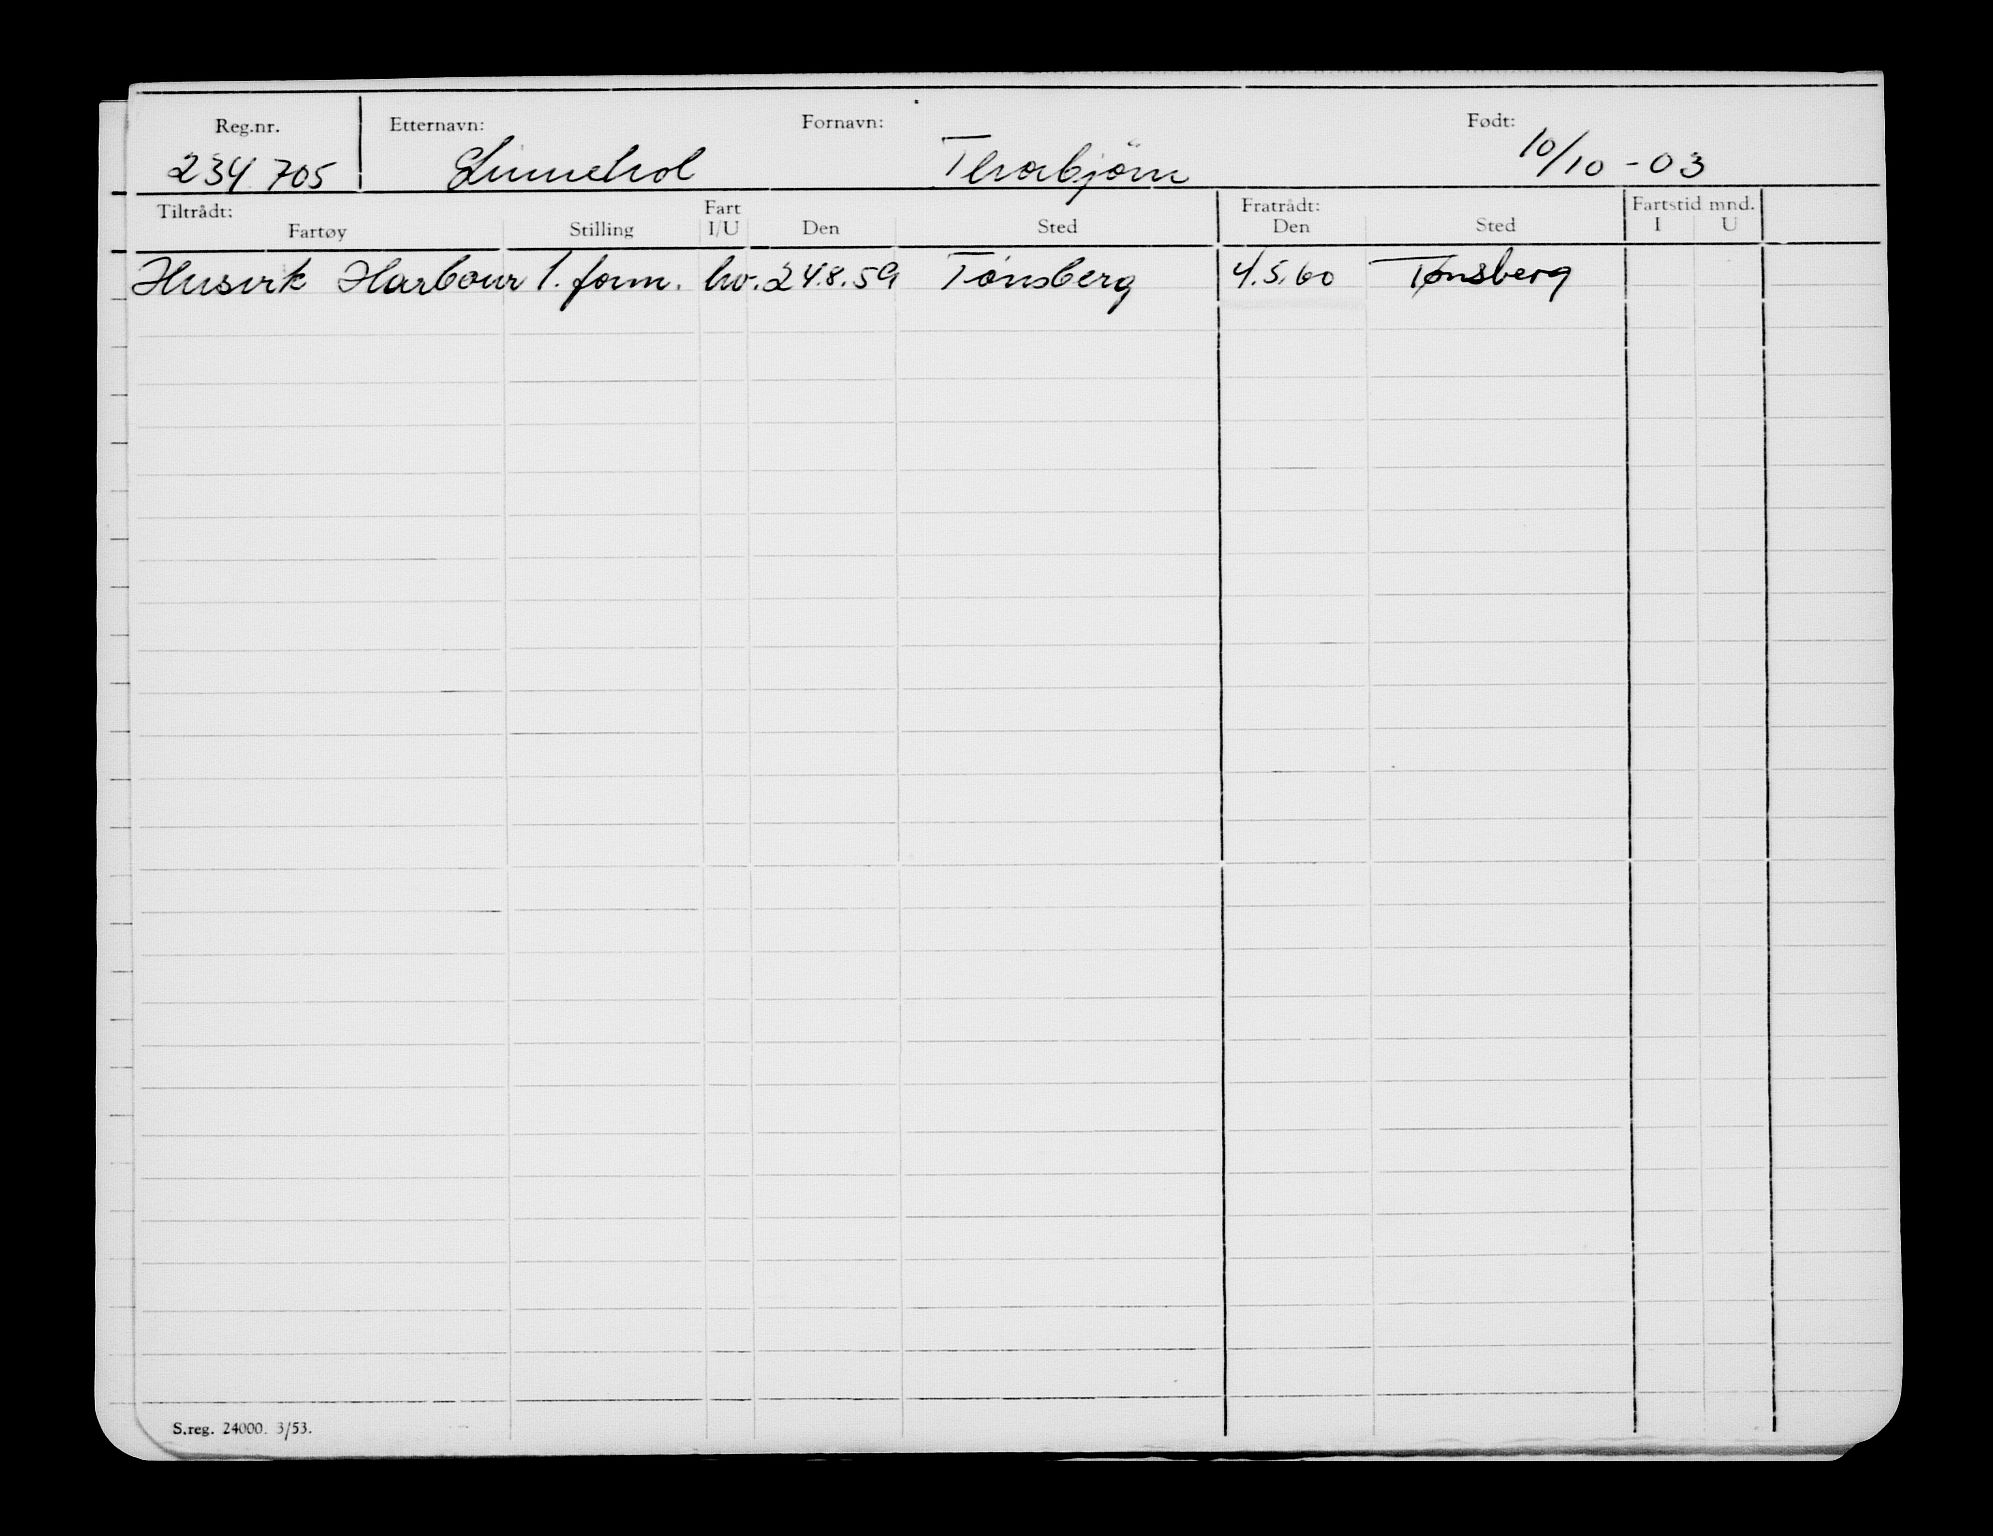 Reg.nr. Etternavn: Fornavn: Født:
234705 Linnehol Thorbjörn 10/10-03
Tiltrådt: Fart Fratrådt: Fartstid mnd.
Fartøy Stilling I/U Den Sted Den Sted I U
Husvik Harbour 1. form. hv. 24.8.59 Tønsberg 4.5.60 Tønsberg
S.reg. 24000. 3/53.